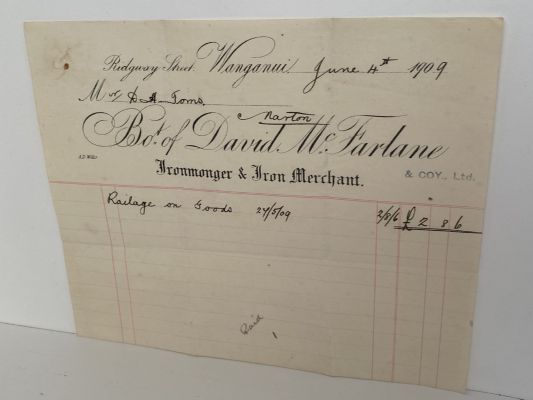 Ridgway Street. Wanganui. June 4th 1909
Mr D. A. Toms.
Marton
Bot. of David McFarlane
& COY., Ltd.
Ironmonger & Iron Merchant.
Railage on Goods 27/5/09 2/8/6 £ 2 8 6
Paid